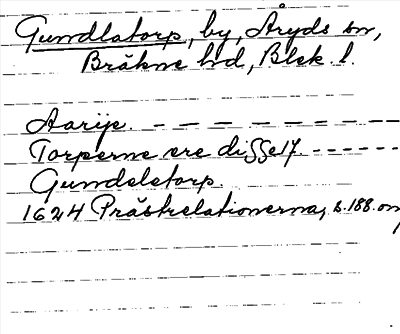 Gundlatorp, by, Åryds sn,
Bräkne hd, Blek. l.
Aarije. — — — — — — — — —
Torperne ere disse 17. — — — — — —
Gundeletorp.
1624 Prästrelationerna, s. 188. om